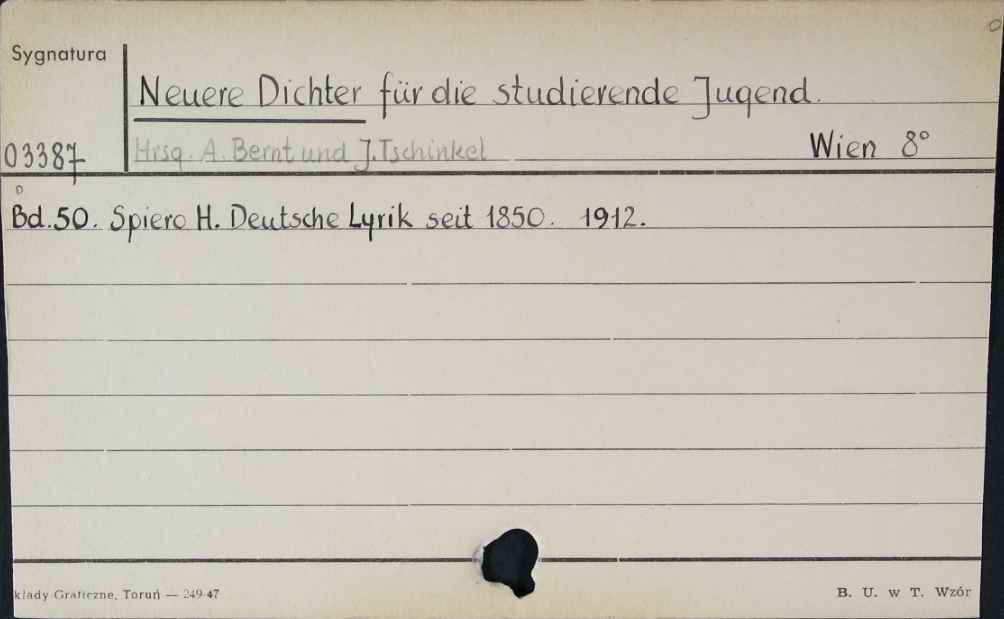 Sygnatura
Neuere Dichter für die studierende Jugend.
03387 Hrsg. A. Bernt und J. Tschinkel Wien 8°
Bd. 50. Spiero H. Deutsche Lyrik seit 1850. 1912.
kłady Graficzne, Toruń — 249-47 B. U. w T. Wzór